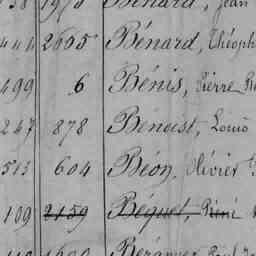 Bénard, Jean
444 2605 Bénard, Théoph
499 6 Bénis, Pierre
247 878 Benoist, Louis
513 604 Béon, Olivier
109 2159 Béquet, René
Béranger, Paul